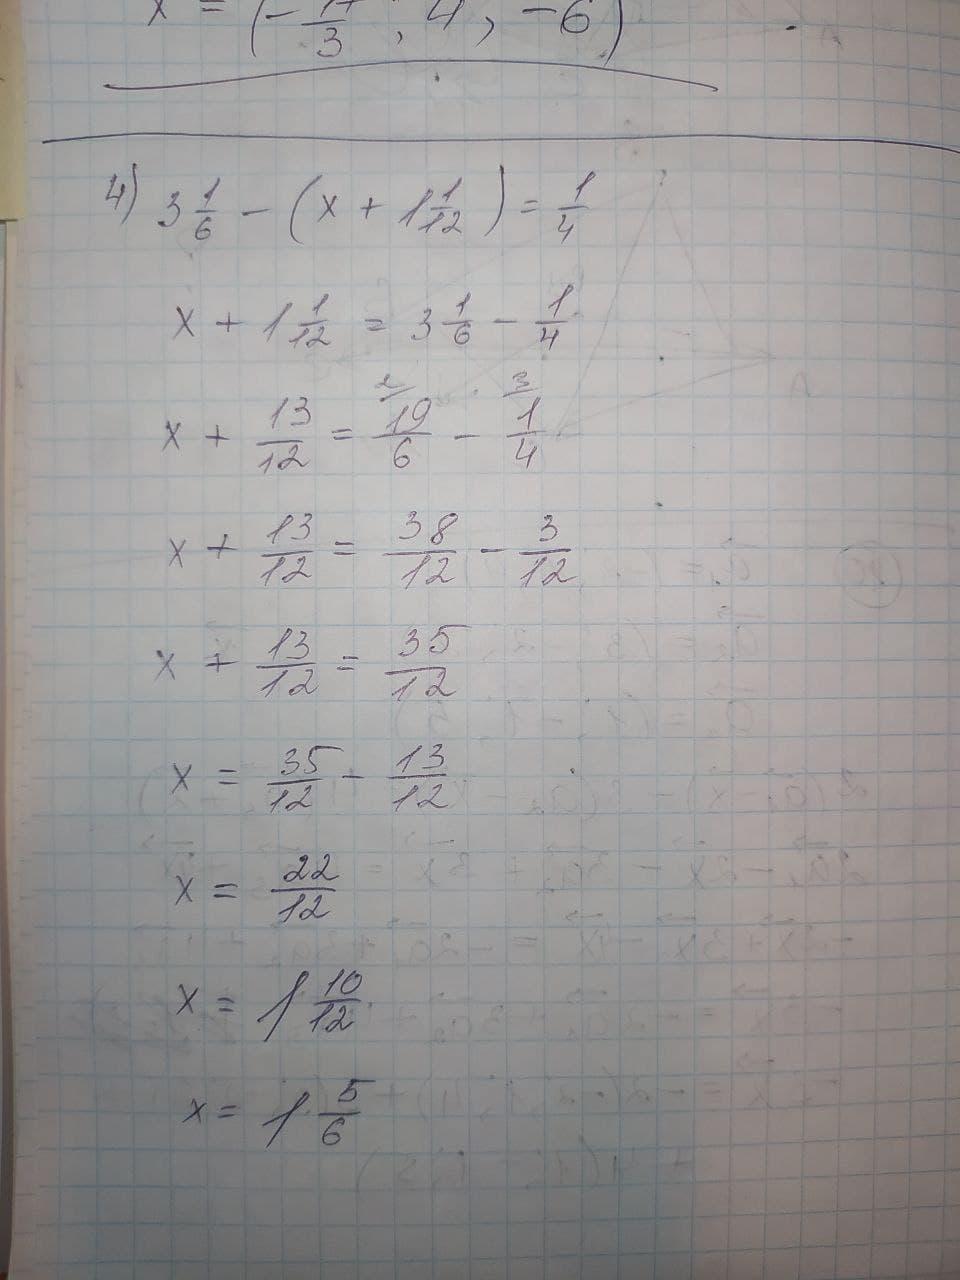 x = (- /3 ; 4 , -6)
4) 3 1/6 - (x + 1 1/12) = 1/4
x + 1 1/12 = 3 1/6 - 1/4
2 3
x + 13/12 = 19/6 - 1/4
x + 13/12 = 38/12 - 3/12
x + 13/12 = 35/12
x = 35/12 - 13/12
x = 22/12
x = 1 10/12
x = 1 5/6